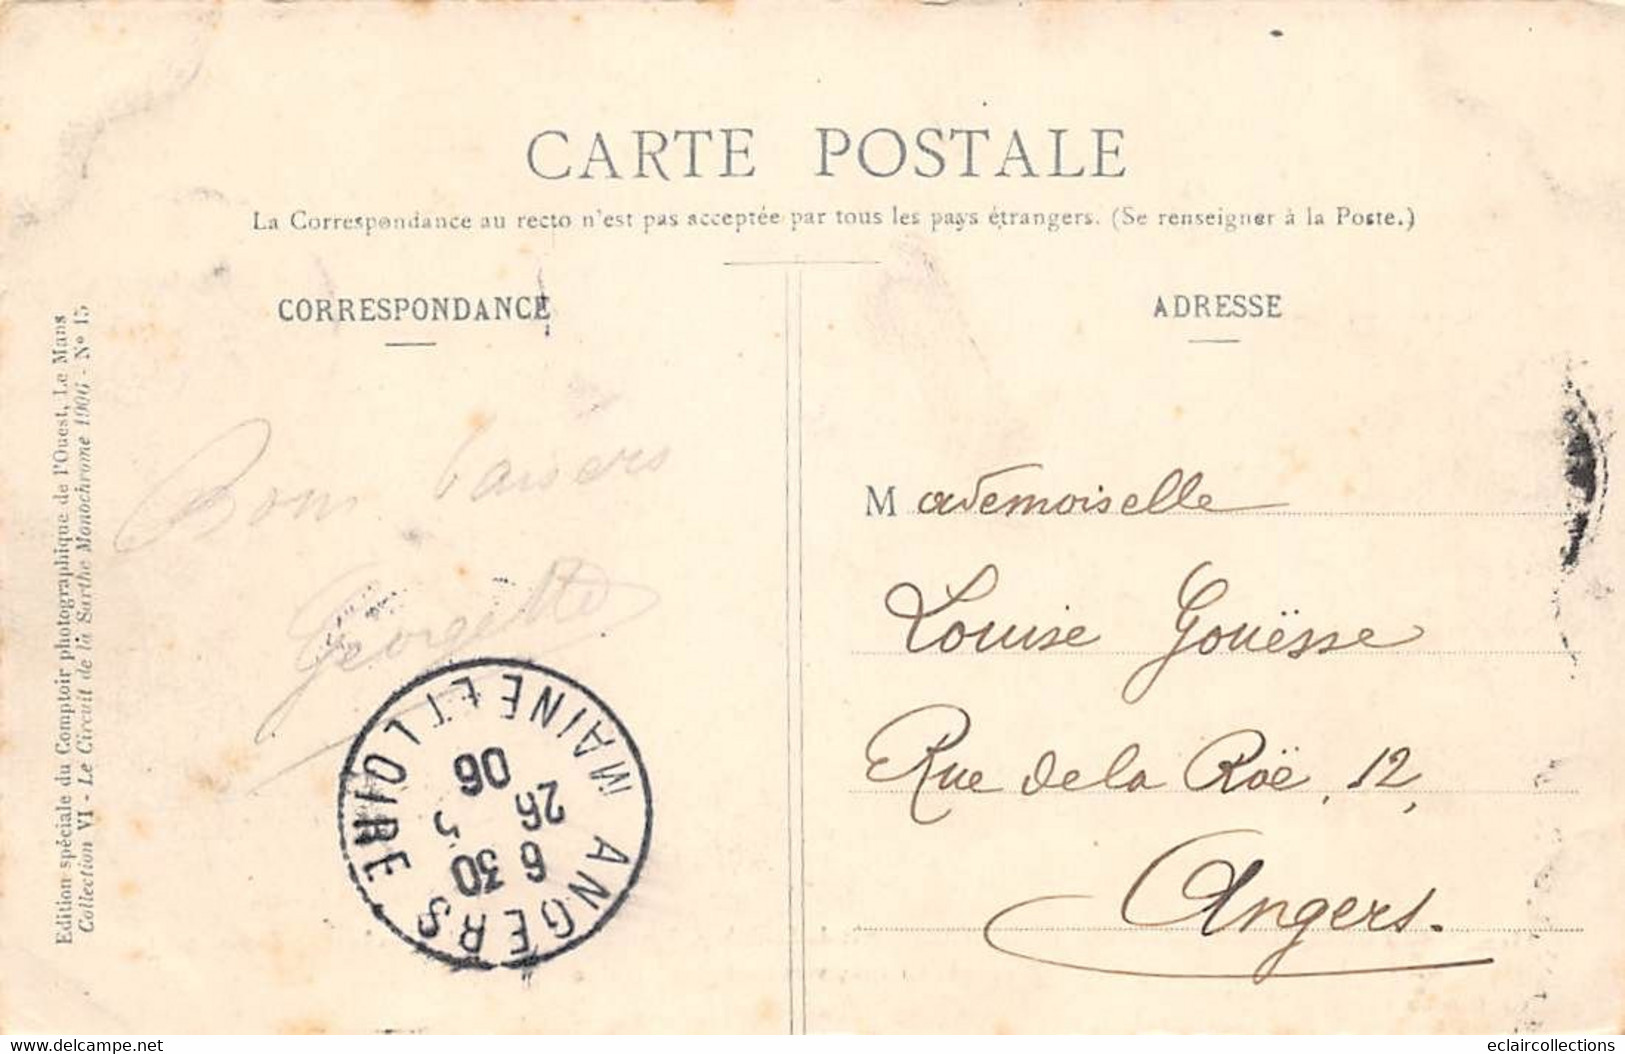 CARTE POSTALE
La Correspondance au recto n'est pas acceptée par tous les pays étrangers. (Se renseigner à la Poste.)
CORRESPONDANCE
ADRESSE
Edition spéciale du Comptoir photographique de l'Ouest, Le Mans
Collection VI - Le Circuit de la Sarthe Monochrome 1906 - N° 15
Bons baisers
Georgette
Mademoiselle
Louise Gouësse
Rue de la Roë, 12,
Angers.
ANGERS MAINE ET LOIRE
6 30
26
06
delcampe.net
eclaircollections